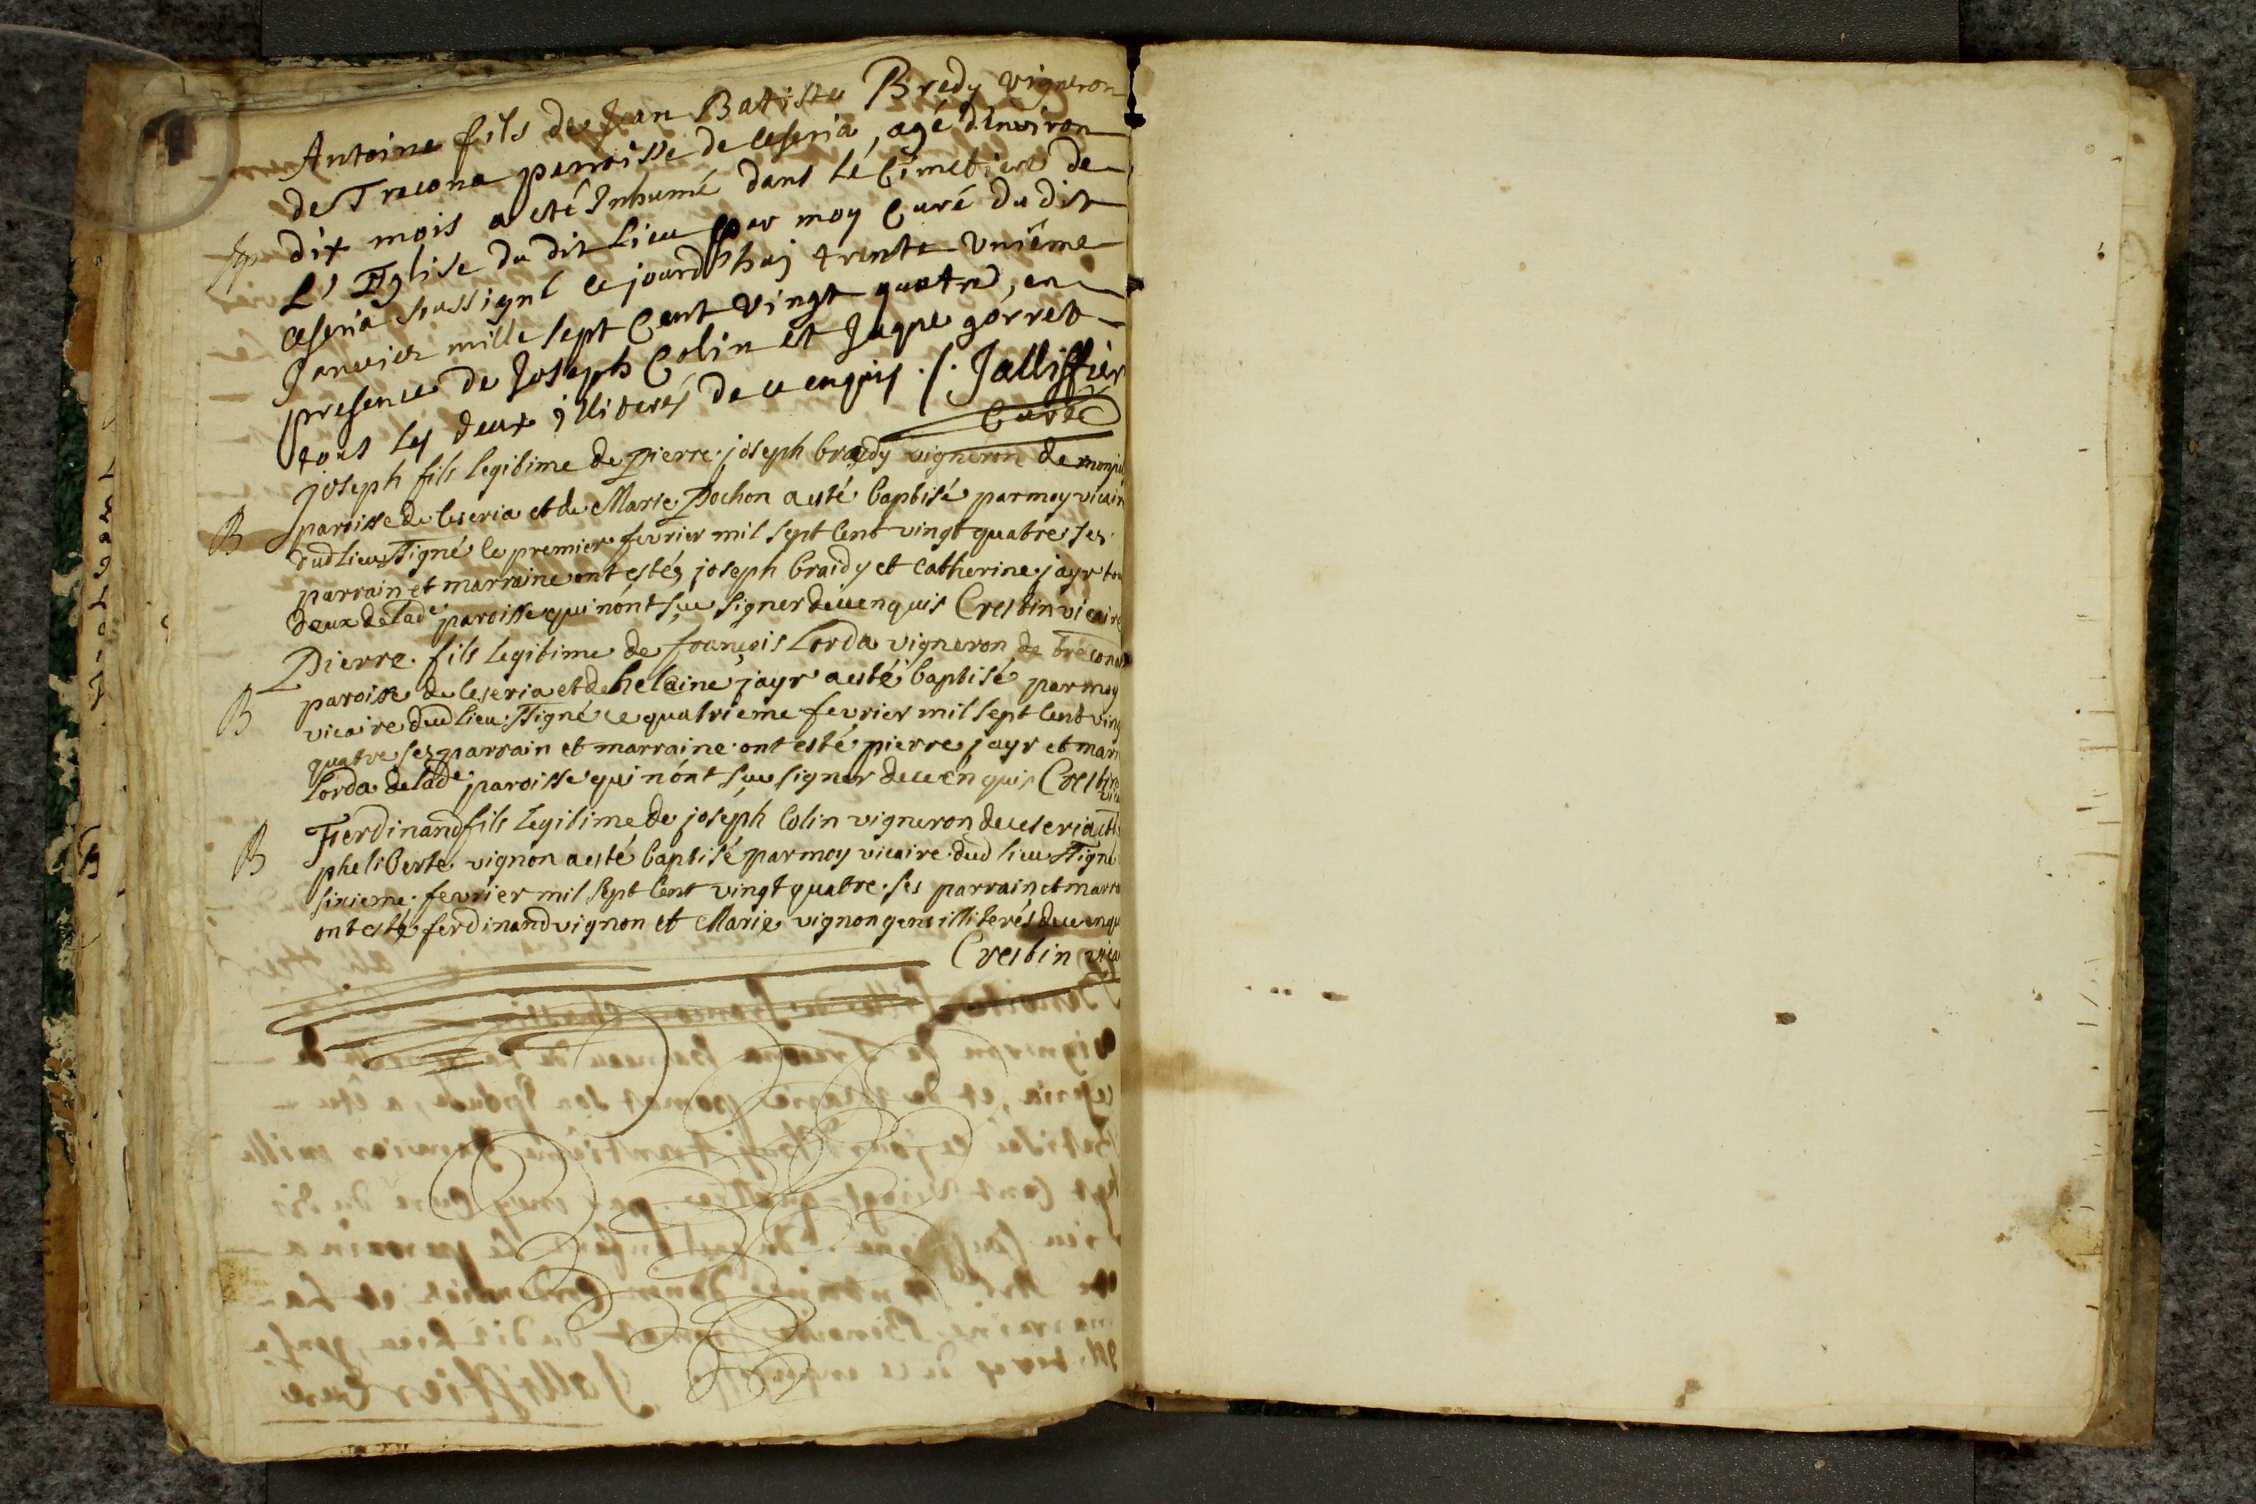 Antoine fils de Jean Batiste Bredy vigneron
de Trecona parroisse de Ceseria, agé d'Environ
dix mois a eté Inhumé dans le Cimetiere de
L' Eglise du dit Lieu par moy Curé du dit
Ceseria soussigné ce jourd'huj trente unième
Janvier mille sept Cent vingt quatre, en
presence de Joseph Colin et Jaque gorret
tous les deux jlliterés de ce enquis ./. Jalliffier
Curé
Joseph fils legitime de pierre joseph braidy vigneron de
B
paroisse de Ceseria et de Marie Pochon a esté baptisé par moy
dud lieu ssigné le premier fevrier mil sept cent vingt quatre ses
parrain et marraine ont estés joseph braidy et catherine jayr
deux de lade paroisse qui nont sçu signer de ce enquis Crestin vicaire
Pierre fils legitime de françois Lorda vigneron de
B
paroisse de Ceseria et de helaine jayr a esté baptisé par moy
vicaire dud lieu ssigné ce quatrieme fevrier mil sept cent
quatre ses parrain et marraine ont esté pierre jayr et
Lorda de lade paroisse qui nont sçu signer de ce enquis
B
Fferdinand fils legitime de joseph Colin vigneron de Ceseria
pheliberte vignon a esté baptisé par moy vicaire dud lieu ssigné
sixieme fevrier mil sept cent vingt quatre ses parrain et
ont esté ferdinand vignon et Marie vignon gens illiterés de ce
Crestin